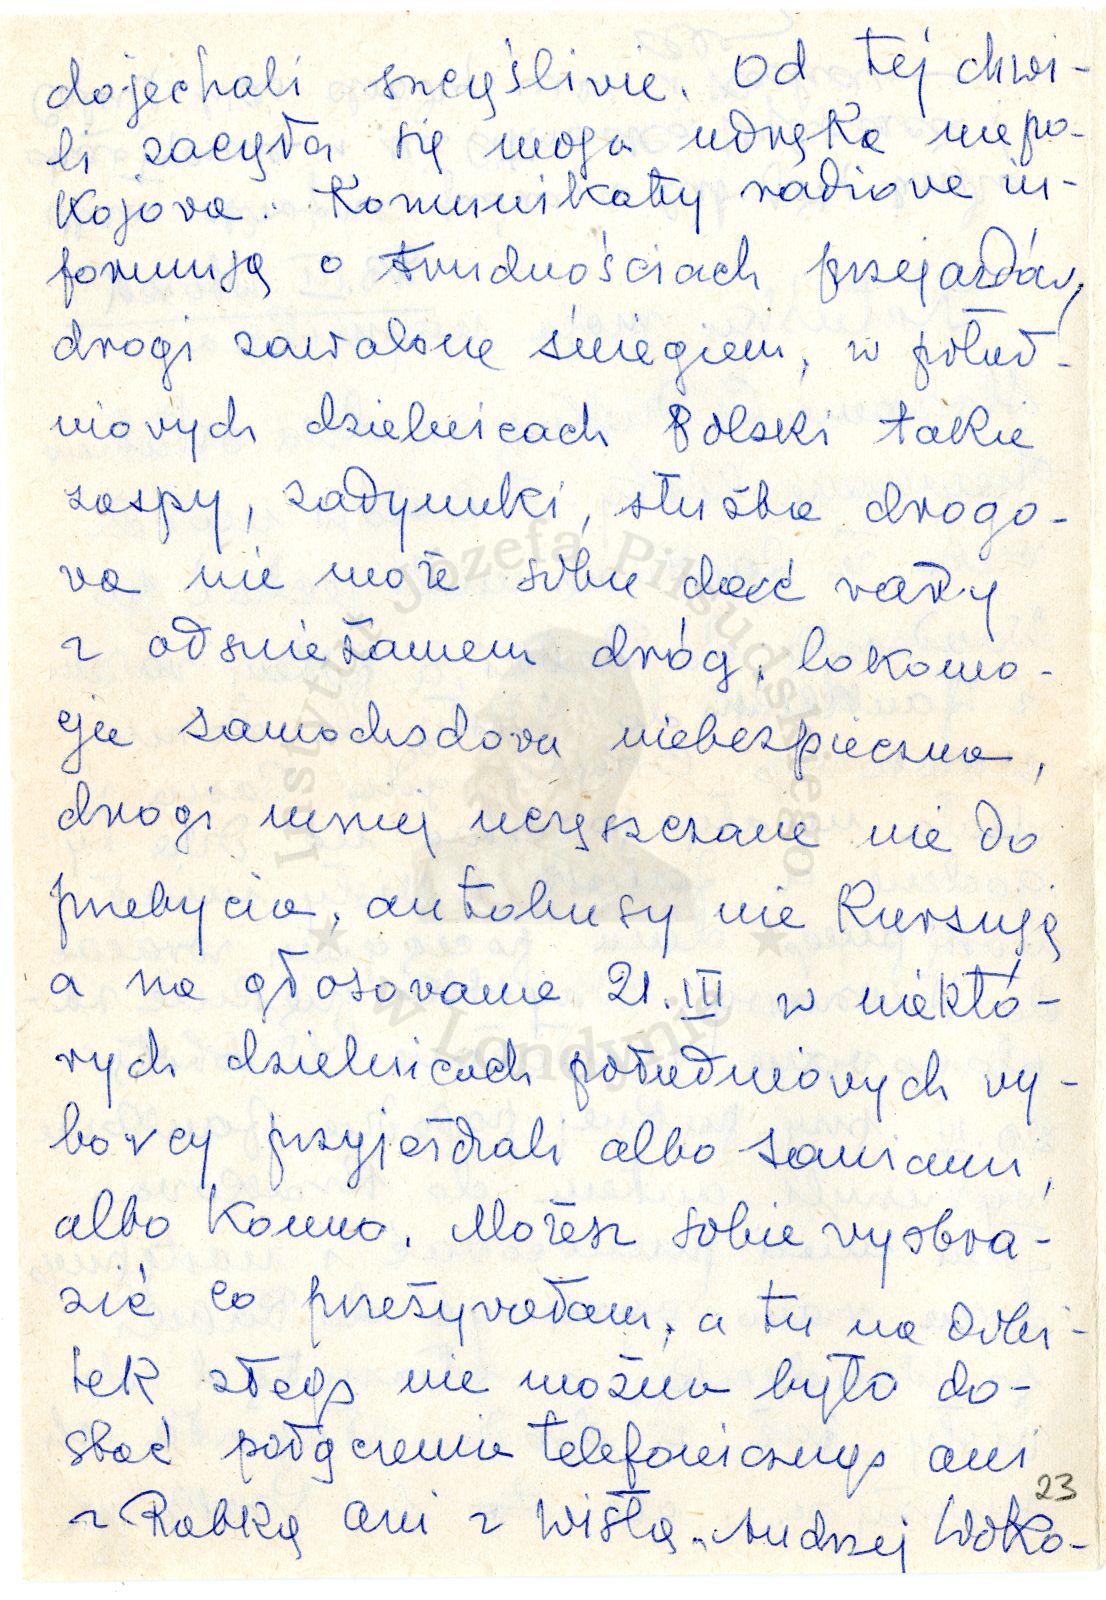 dojechali szczęśliwie. Od tej chwi-
li zaczęła się moja udręka niepo-
kojowa. Komunikaty radiowe in-
formują o trudnościach przejazdów,
drogi zawalone śniegiem, w połud-
niowych dzielnicach Polski takie
zaspy, zadymki, służba drogo-
wa nie może sobie dać rady
z odśnieżaniem dróg, lokomo-
cja samochodowa niebezpieczna,
drogi mniej uczęszczane nie do
przebycia, autobusy nie kursują
a na głosowanie 21.III w niektó-
rych dzielnicach południowych wy-
borcy przyjeżdżali albo saniami,
albo konno. Możesz sobie wyobra-
zić co przeżywałam, a tu na dobi-
tek złego nie można było do-
stać połączenia telefonicznego ani
z Rabką ani z Wisłą. Andrzej Woko-
23
Instytut Józefa Piłsudskiego
w Londynie